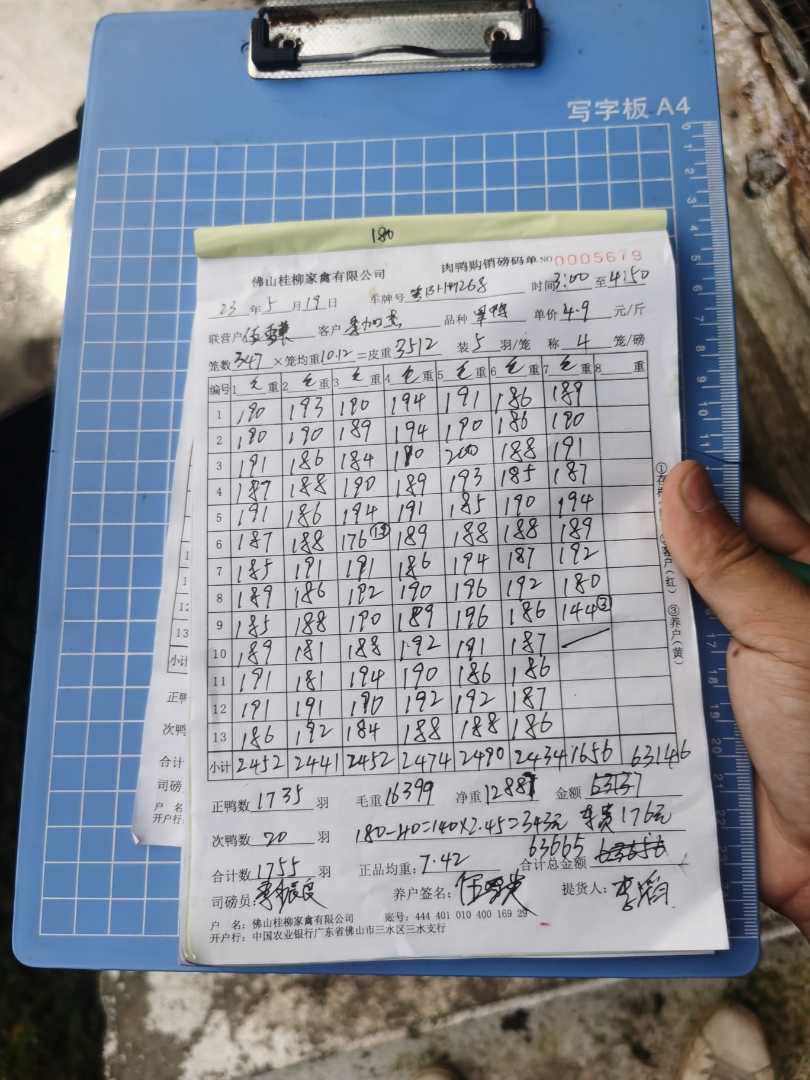 写字板 A4
180
佛山桂柳家禽有限公司 肉鸭购销磅码单 NO 0005679
23 年 5 月 19 日 车牌号 时间 3:00 至 4:50
联营户 客户 品种 单价 4.9 元/斤
笼数 347 ×笼均重 10.12 =皮重 3512 装 5 羽/笼 称 4 笼/磅
编号 1 毛重 2 毛重 3 毛重 4 毛重 5 毛重 6 毛重 7 毛重 8 重
1 190 193 190 194 191 186 189
2 190 190 189 194 190 186 190
3 191 186 184 190 200 188 191
4 187 188 190 189 193 185 187
5 191 186 194 191 185 190 194
6 187 188 176 189 188 188 189
7 185 191 191 186 194 187 192
8 189 186 192 190 196 192 180
9 185 188 190 189 196 186 144 ②
10 189 181 188 192 191 187
11 191 181 194 190 186 186
12 191 191 190 192 192 187
13 186 192 184 188 188 186
小计 2452 2441 2452 2474 2490 2434 1656 63146
正鸭数 1735 羽 毛重 16399 净重 12887 金额 63137
次鸭数 20 羽 180-40=140×2.45=343元 车贵 176元
合计数 1755 羽 正品均重: 7.42 合计总金额 63665
司磅员: 养户签名: 提货人:
户 名: 佛山桂柳家禽有限公司 账号: 444 401 010 400 169 29
开户行: 中国农业银行广东省佛山市三水区三水支行
(红) ③养户(黄)